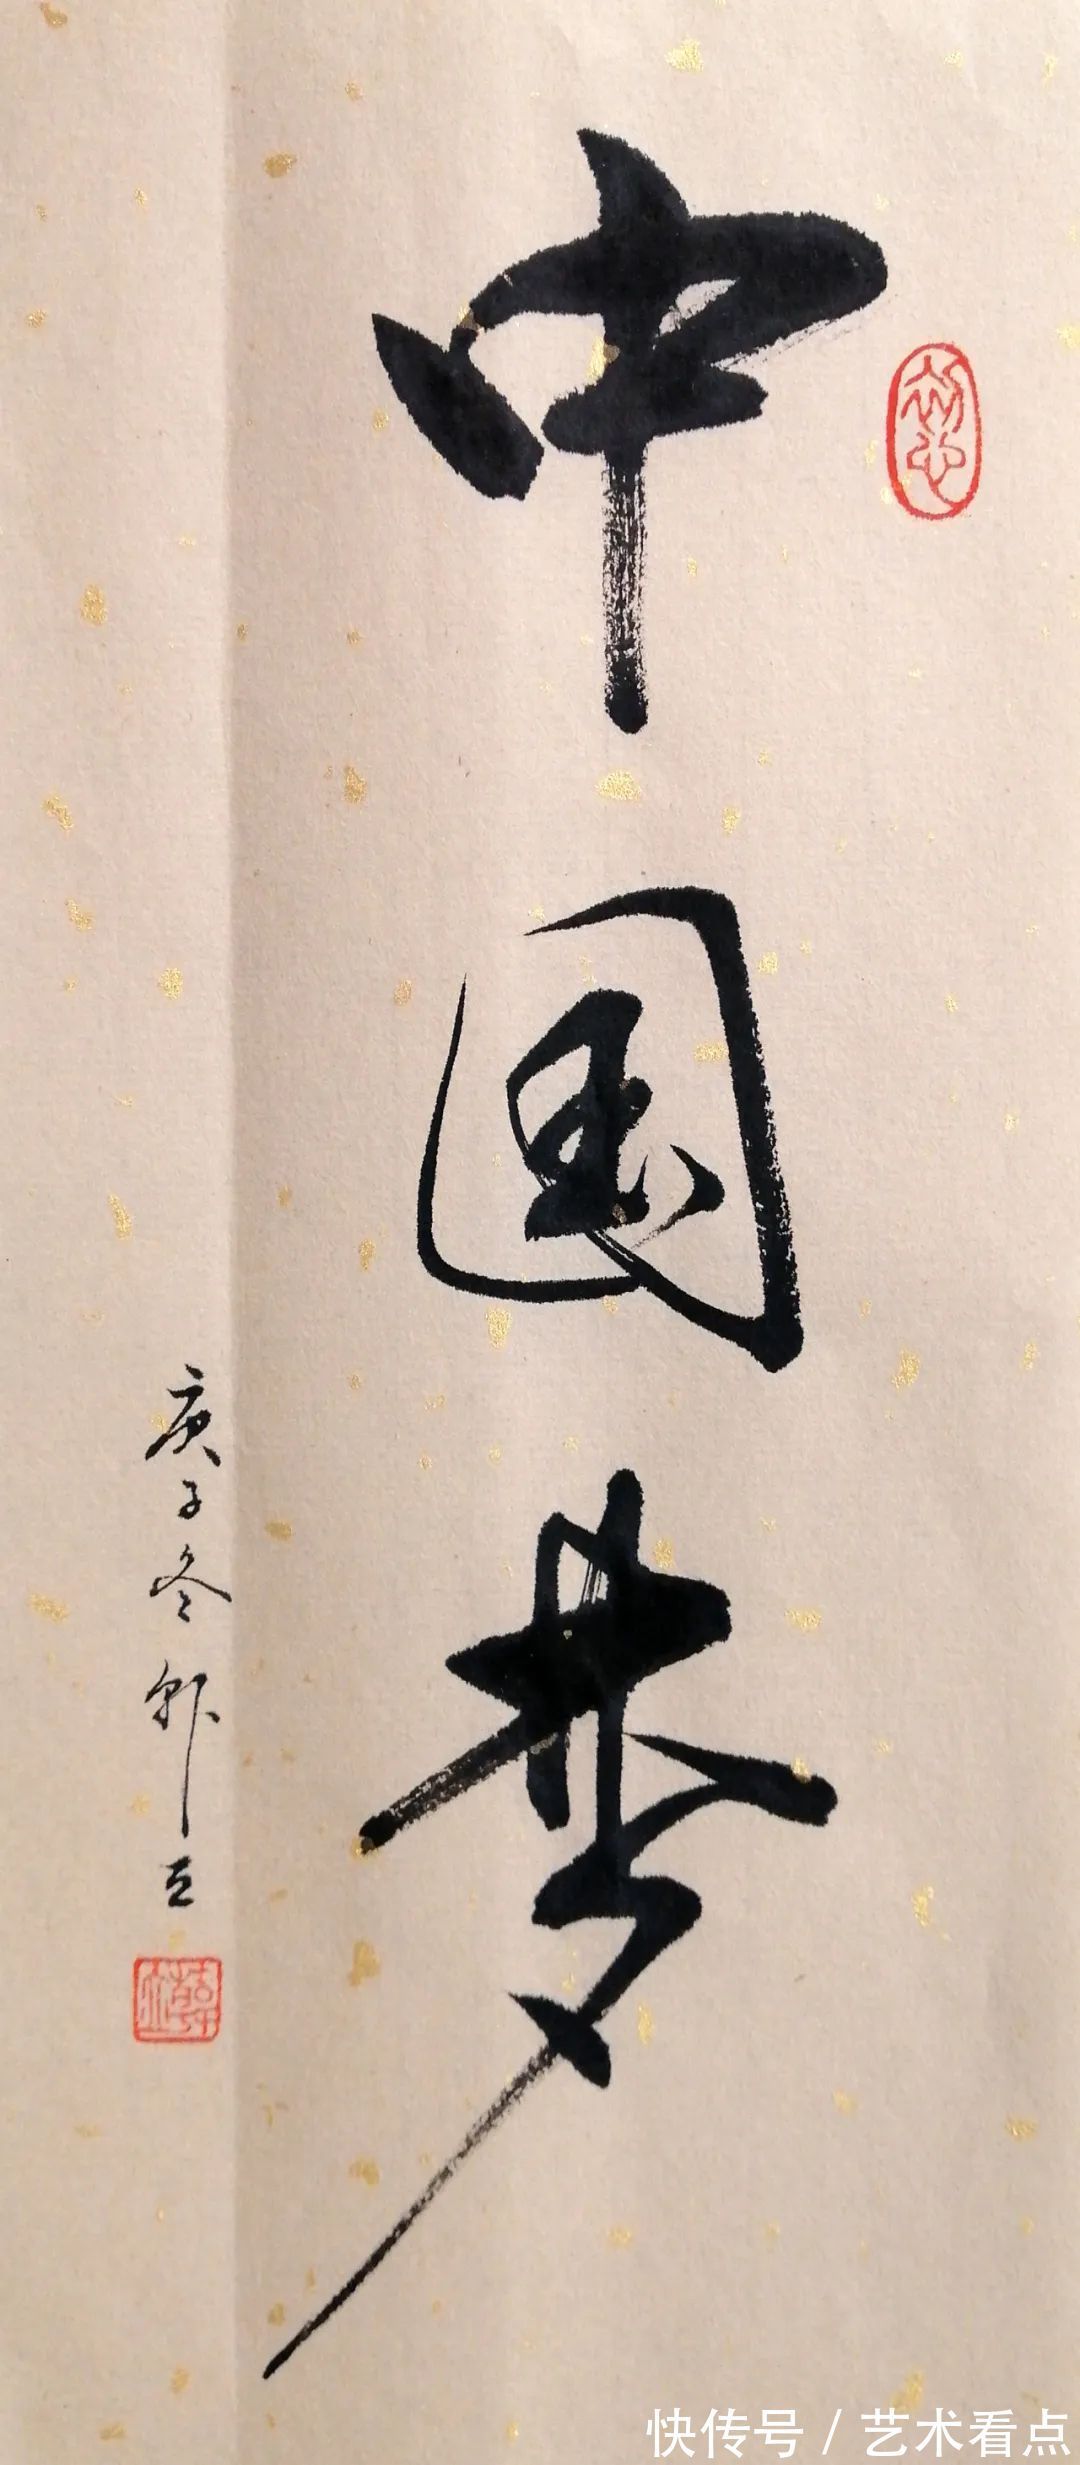 中国梦
庚子冬
初心
快传号 / 艺术看点